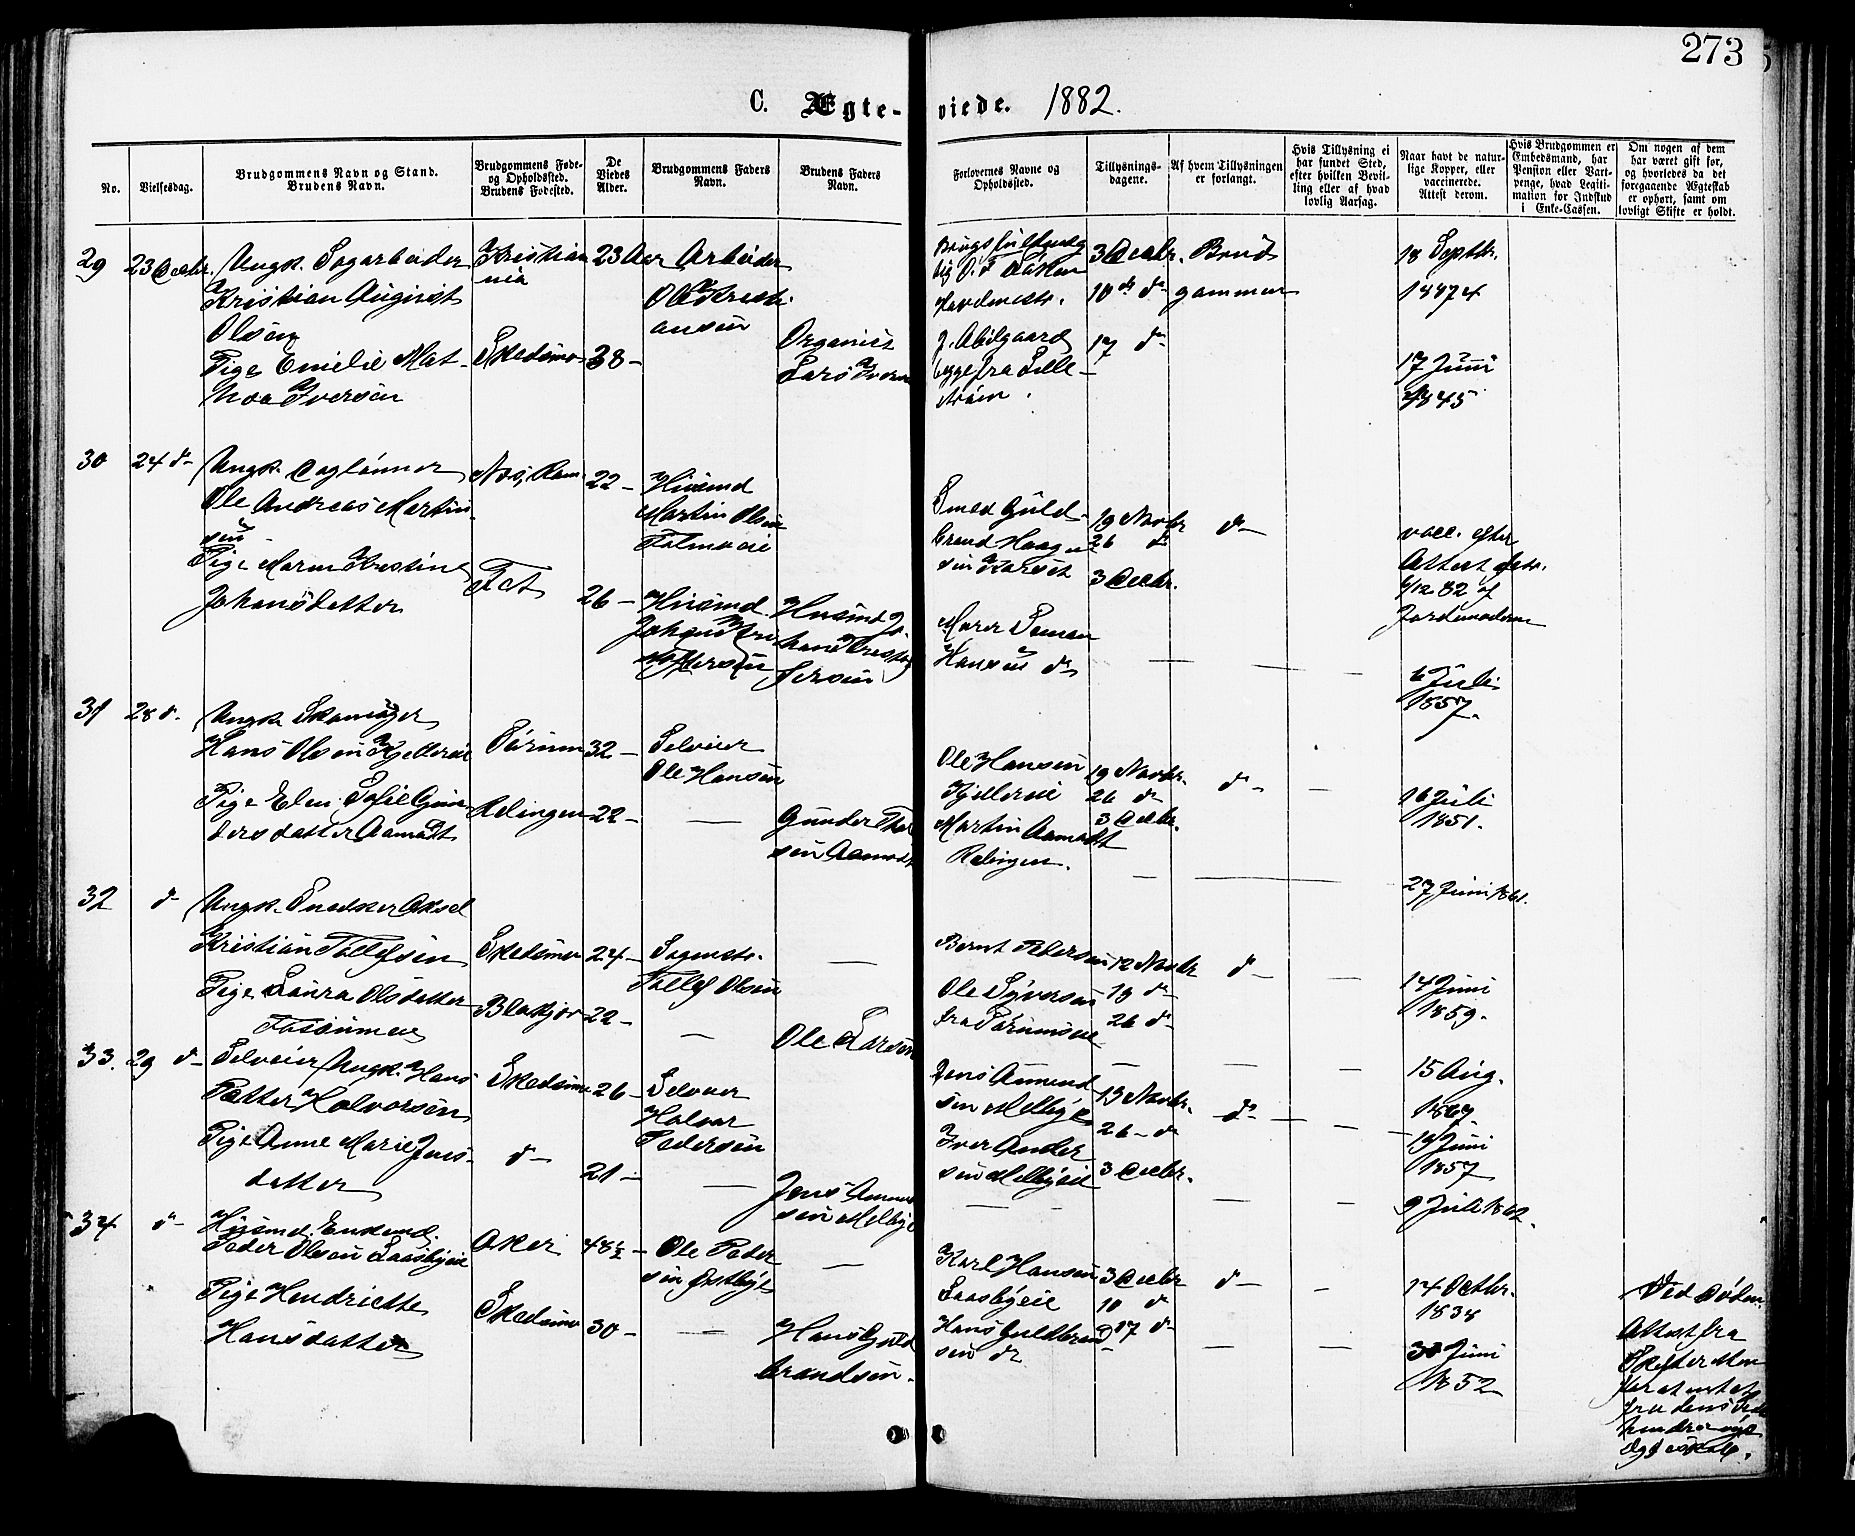 273
C. Ægte-viede. 1882.
No.
Vielsesdag.
Brudgommens Navn og Stand.
Brudens Navn.
Brudgommens Føde-
og Opholdssted.
Brudens Fødested.
De
Viedes
Alder.
Brudgommens Faders
Navn.
Brudens Faders
Navn.
Forlovernes Navne og
Opholdssted.
Tillysnings-
dagene.
Af hvem Tillysningen
er forlangt.
Hvis Tillysning ei
har fundet Sted,
efter hvilken Bevil-
ling eller af hvad
lovlig Aarsag.
Naar havt de natur-
lige Kopper, eller
vaccinerede.
Attest derom.
Hvis Brudgommen er
Embedsmand, har
Pension eller Vart-
penge, hvad Legiti-
mation for Indskud
i Enke-Cassen.
Om nogen af dem
har været gift før,
og hvorledes da det
foregaaende Ægteskab
er ophørt, samt om
lovligt Skifte er holdt.
29
23 Decbr.
Ungk. Sagarbeider
Kristian August
Olsen
Pige Emelie Mat-
hea Iversen
Kristian
nia
Skedsmo
23 Aar
38 -
Arbeider
Ole Kristi
ansen
Organist
Lars Iversen
J. Abilgaard
begge fra Lille-
strøm.
3 Decbr.
10 do do
17 do
Brud
gommen
18 Septbr.
1874
17 Juni
1845
30
24 do
Ungk. Daglønner
Ole Andreas Martin
sen
Pige Maren Kristine
Johansdatter
Fet
22 -
26 -
Husmd
Martin Olsen
Husmd.
Husmd Jo-
hans Kristof
fersen
Smed Guld-
brand Haagen
sen
Hansen do
19 Novbr
26 do
3 Decbr.
do
vacc. efter
Attest
6/12 82 af
Jordemoderen
6 Juli
1857.
31
28 do
Ungk. Skomager
Hans Olsen Kjellereie
Pige Elen Sofie Gun
dersdatter Aamodt
Sørum
Rælingen
32 -
22 -
Selveier
Ole Hansen
Gunder Thor
sen Aamodt
Ole Hansen
Kjellereie
Martin Aamodt
Rælingen.
19 Novbr.
26 do
3 Decbr.
do
16 Juli
1851.
27 Juni 1861.
32
do
Ungk. Snedker Aksel
Kristian Tollefsen
Pige Laura Olsdatter
Skedsmo
Blakjer
24 -
22 -
Tollef Olsen
Ole Larsen
Bernt Pedersen
Ole Syversen
fra Sørumseie
12 Novbr
19 do
26 do
do
14 Juni
1859.
15 Aug.
33.
29 do
Selveier Ungk. Hans
Petter Halvorsen
Pige Anne Marie Jens-
datter
Skedsmo
do
26 -
21 -
Selveier
Halvor
Pedersen
Jens Amund
sen Melbye
Jens Amund
sen Melbye
Iver Ander
sen Melbyeie
19 Novbr.
26 do
3 Decbr.
do
19 Juni
1857
9 Juli 1862.
34
do
Husmd. Enkemd.
Peder Olsen Laasbyeie
Pige Hendriette
Hansdatter
Aker
Skedsmo
48 ½ -
30 -
Ole Peder
sen Østbye
Hans Guld
brandsen.
Karl Hansen
Laasbyeie
Hans Guldbrand
sen do
3 Decbr
10 do
17 do
do
14 Octbr.
1834
30 Juni
1852
Ved Døden.
Attest fra
Skifteretten